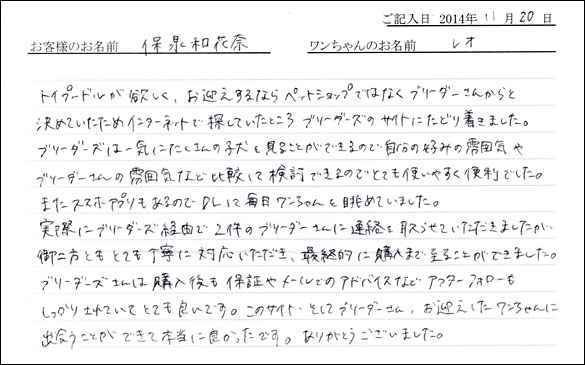 ご記入日 2014年 11月 20日
お客様のお名前 保泉和花奈 ワンちゃんのお名前 レオ
トイプードルが欲しく、お迎えするならペットショップではなくブリーダーさんからと
決めていたためインターネットで探していたところブリーダーズのサイトにたどり着きました。
ブリーダーズは一気にたくさんの子犬を見ることができるので自分の好みの雰囲気や
ブリーダーさんの雰囲気など比較して検討できるのでとても使いやすく便利でした。
またスマホアプリもあるのでDLにて毎日ワンちゃんを眺めていました。
実際にブリーダーズ経由で2件のブリーダーさんに連絡を取らせていただきましたが、
御二方ともとても丁寧に対応いただき、最終的に購入まで至ることができました。
ブリーダーズさんは購入後も保証やメールでのアドバイスなどアフターフォローも
しっかりされていてとても良いです。このサイト、そしてブリーダーさん、お迎えしたワンちゃんに
出会うことができて本当に良かったです。ありがとうございました。